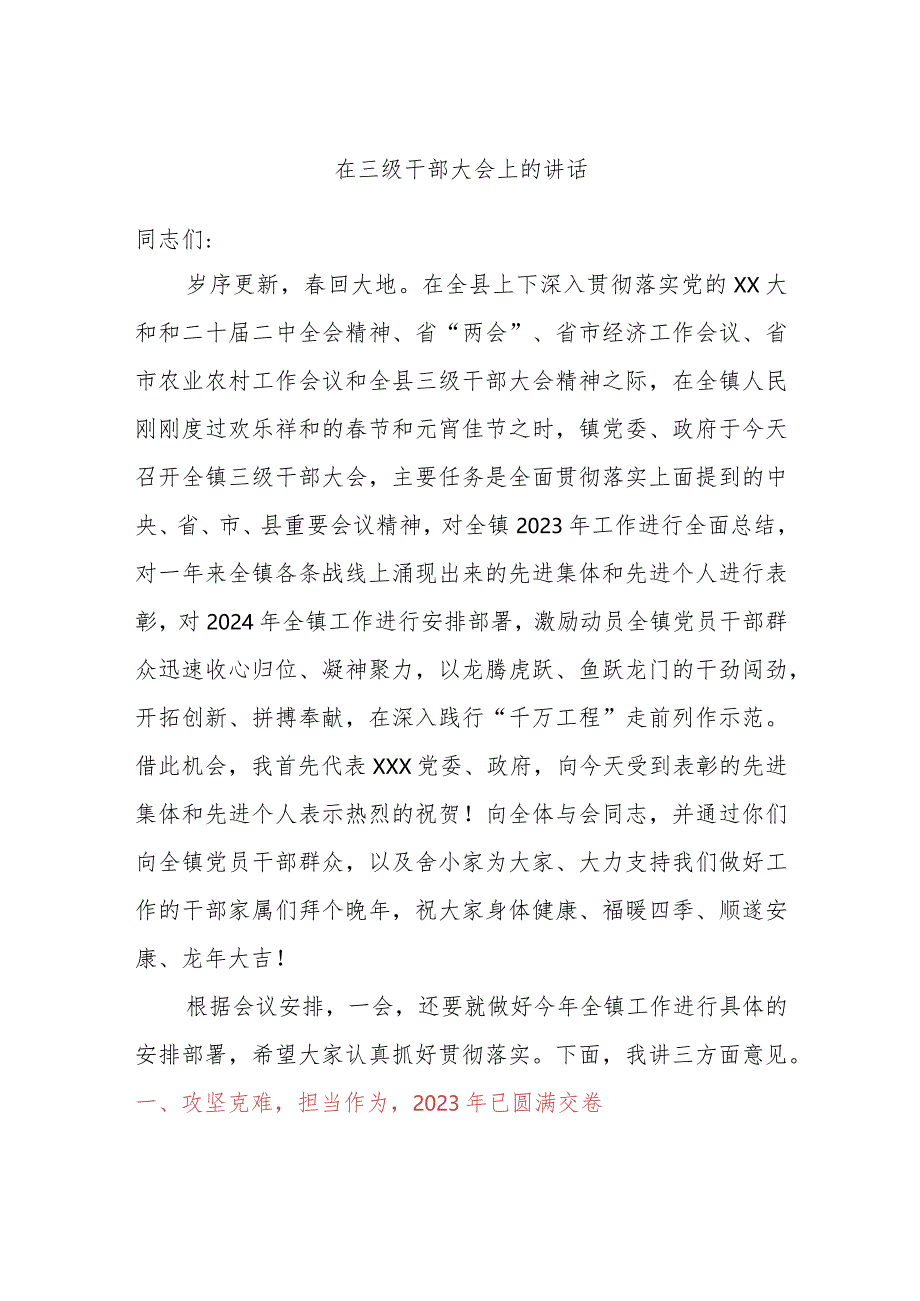 在三级干部大会上的讲话
同志们:
岁序更新，春回大地。在全县上下深入贯彻落实党的XX大
和和二十届二中全会精神、省“两会”、省市经济工作会议、省
市农业农村工作会议和全县三级干部大会精神之际，在全镇人民
刚刚度过欢乐祥和的春节和元宵佳节之时，镇党委、政府于今天
召开全镇三级干部大会，主要任务是全面贯彻落实上面提到的中
央、省、市、县重要会议精神，对全镇2023年工作进行全面总结，
对一年来全镇各条战线上涌现出来的先进集体和先进个人进行表
彰，对2024年全镇工作进行安排部署，激励动员全镇党员干部群
众迅速收心归位、凝神聚力，以龙腾虎跃、鱼跃龙门的干劲闯劲，
开拓创新、拼搏奉献，在深入践行“千万工程”走前列作示范。
借此机会，我首先代表XXX党委、政府，向今天受到表彰的先进
集体和先进个人表示热烈的祝贺！向全体与会同志，并通过你们
向全镇党员干部群众，以及舍小家为大家、大力支持我们做好工
作的干部家属们拜个晚年，祝大家身体健康、福暖四季、顺遂安
康、龙年大吉！
根据会议安排，一会，还要就做好今年全镇工作进行具体的
安排部署，希望大家认真抓好贯彻落实。下面，我讲三方面意见。
一、攻坚克难，担当作为，2023年已圆满交卷